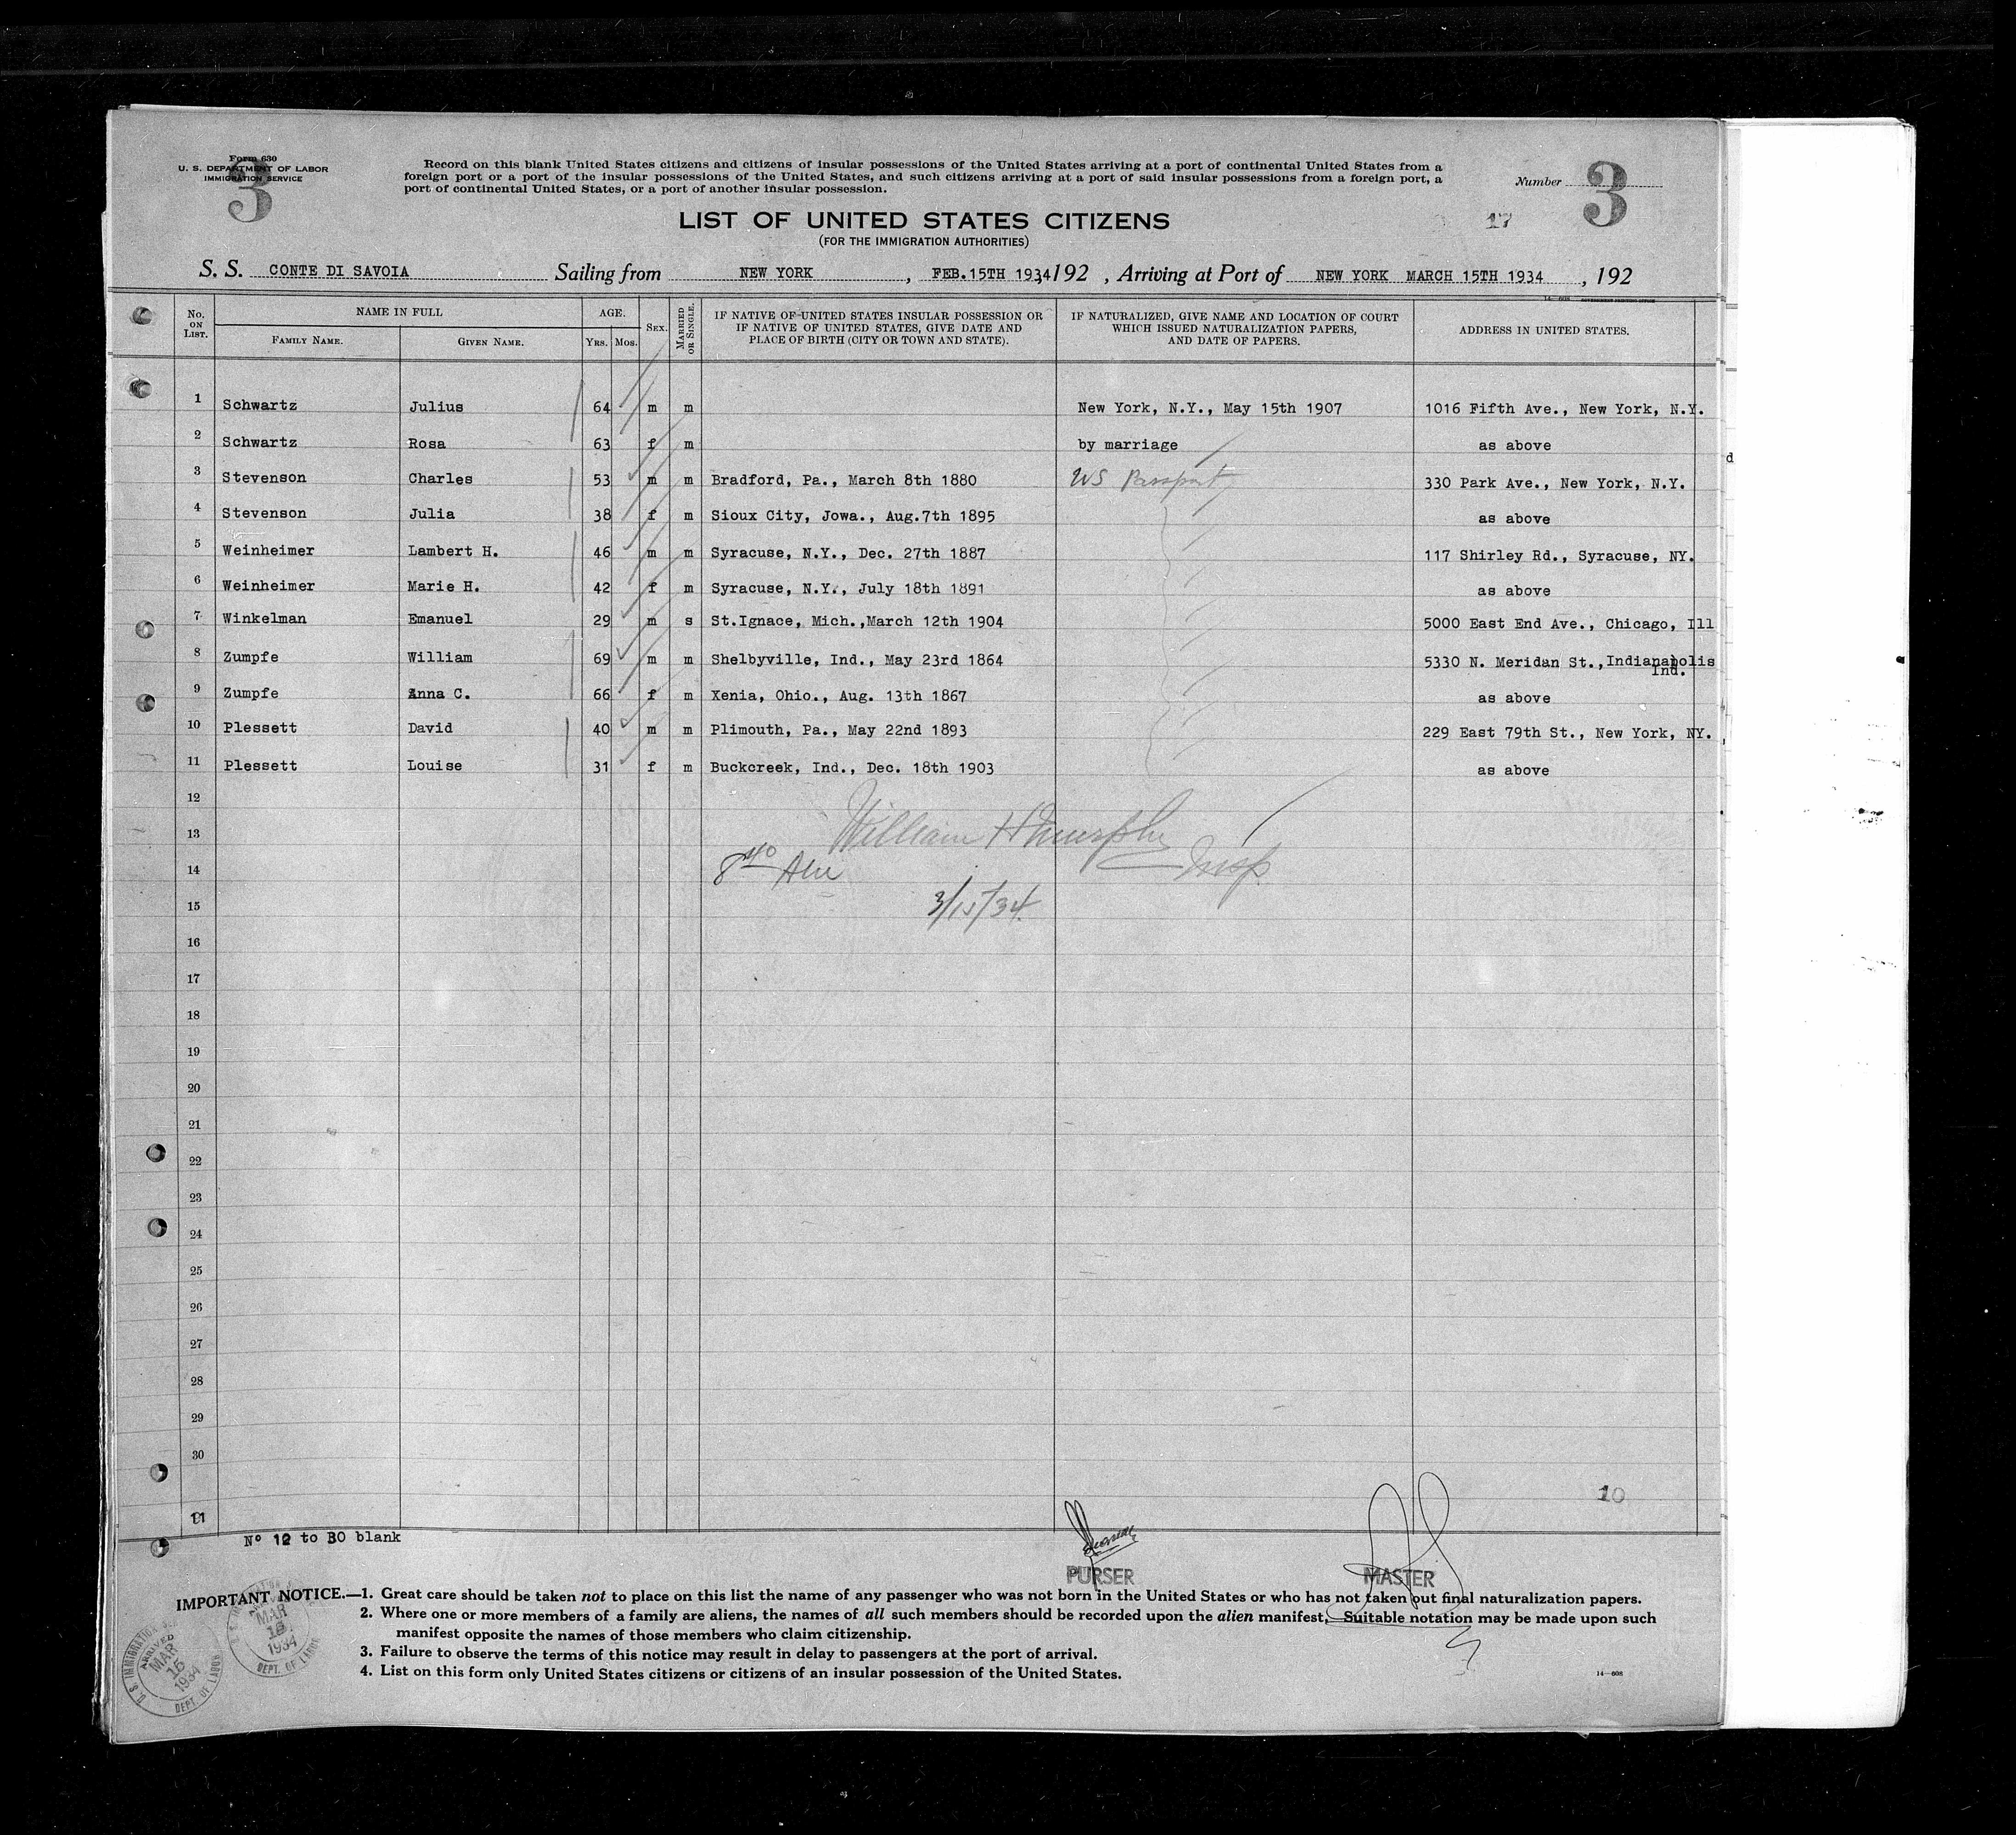 Form 630
U. S. DEPARTMENT OF LABOR
IMMIGRATION SERVICE
3
Record on this blank United States citizens and citizens of insular possessions of the United States arriving at a port of continental United States from a
foreign port or a port of the insular possessions of the United States, and such citizens arriving at a port of said insular possessions from a foreign port, a
port of continental United States, or a port of another insular possession.
Number 3
LIST OF UNITED STATES CITIZENS
17
(FOR THE IMMIGRATION AUTHORITIES)
S. S. CONTE DI SAVOIA Sailing from NEW YORK , FEB.15TH 1934, 192 , Arriving at Port of NEW YORK MARCH 15TH 1934 , 192
14—608 GOVERNMENT PRINTING OFFICE
No. ON LIST. NAME IN FULL FAMILY NAME. GIVEN NAME. AGE. YRS. MOS. SEX. MARRIED OR SINGLE. IF NATIVE OF UNITED STATES INSULAR POSSESSION OR IF NATIVE OF UNITED STATES, GIVE DATE AND PLACE OF BIRTH (CITY OR TOWN AND STATE). IF NATURALIZED, GIVE NAME AND LOCATION OF COURT WHICH ISSUED NATURALIZATION PAPERS, AND DATE OF PAPERS. ADDRESS IN UNITED STATES.
1 Schwartz Julius 64 m m New York, N.Y., May 15th 1907 1016 Fifth Ave., New York, N.Y.
2 Schwartz Rosa 63 f m by marriage as above
3 Stevenson Charles 53 m m Bradford, Pa., March 8th 1880 US Passport 330 Park Ave., New York, N.Y.
4 Stevenson Julia 38 f m Sioux City, Jowa., Aug.7th 1895 as above
5 Weinheimer Lambert H. 46 m m Syracuse, N.Y., Dec. 27th 1887 117 Shirley Rd., Syracuse, NY.
6 Weinheimer Marie H. 42 f m Syracuse, N.Y., July 18th 1891 as above
7 Winkelman Emanuel 29 m s St.Ignace, Mich.,March 12th 1904 5000 East End Ave., Chicago, Ill
8 Zumpfe William 69 m m Shelbyville, Ind., May 23rd 1864 5330 N. Meridan St.,Indianapolis
Ind.
9 Zumpfe Anna C. 66 f m Xenia, Ohio., Aug. 13th 1867 as above
10 Plessett David 40 m m Plimouth, Pa., May 22nd 1893 229 East 79th St., New York, NY.
11 Plessett Louise 31 f m Buckcreek, Ind., Dec. 18th 1903 as above
12
13 William H Murphy
14 8 40 Insp.
15 3/15/34.
16
17
18
19
20
21
22
23
24
25
26
27
28
29
30
10
11
Nº 12 to 30 blank
PURSER MASTER
IMPORTANT NOTICE.—1. Great care should be taken not to place on this list the name of any passenger who was not born in the United States or who has not taken out final naturalization papers.
2. Where one or more members of a family are aliens, the names of all such members should be recorded upon the alien manifest. Suitable notation may be made upon such
manifest opposite the names of those members who claim citizenship.
3. Failure to observe the terms of this notice may result in delay to passengers at the port of arrival.
4. List on this form only United States citizens or citizens of an insular possession of the United States.
14—608
U. S. IMMIGRATION
ARRIVED
MAR 15 1934
DEPT. OF LABOR
MAR 15 1934
DEPT. OF LABOR
d